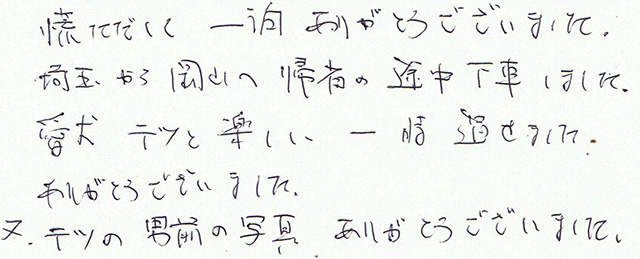 慌ただしく 一泊 ありがとうございました。
埼玉から岡山へ 帰省の 途中下車 しました。
愛犬 テツと 楽しい 一時 過せました。
ありがとうございました。
又、テツの 男前の写真 ありがとうございました。